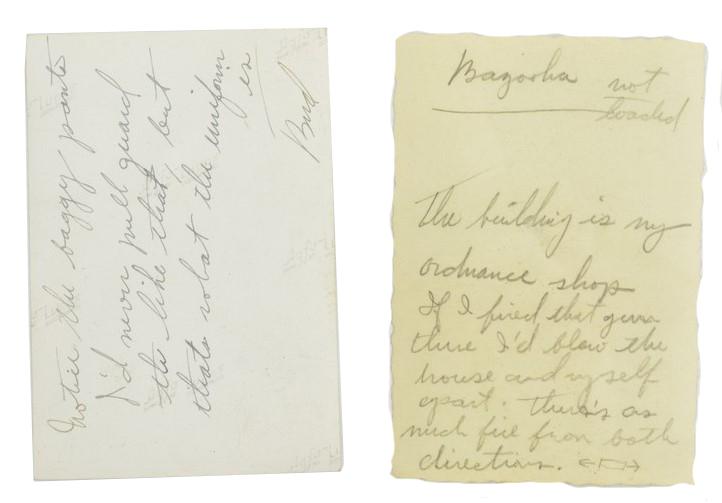 Notice the baggy pants
I'd never pull guard
like that, but
thats what the uniform
is
Bud
Bazooka not
loaded
The building is my
ordnance shop
If I fired that gun
there I'd blow the
house and myself
apart. There's as
much fire from both
directions.